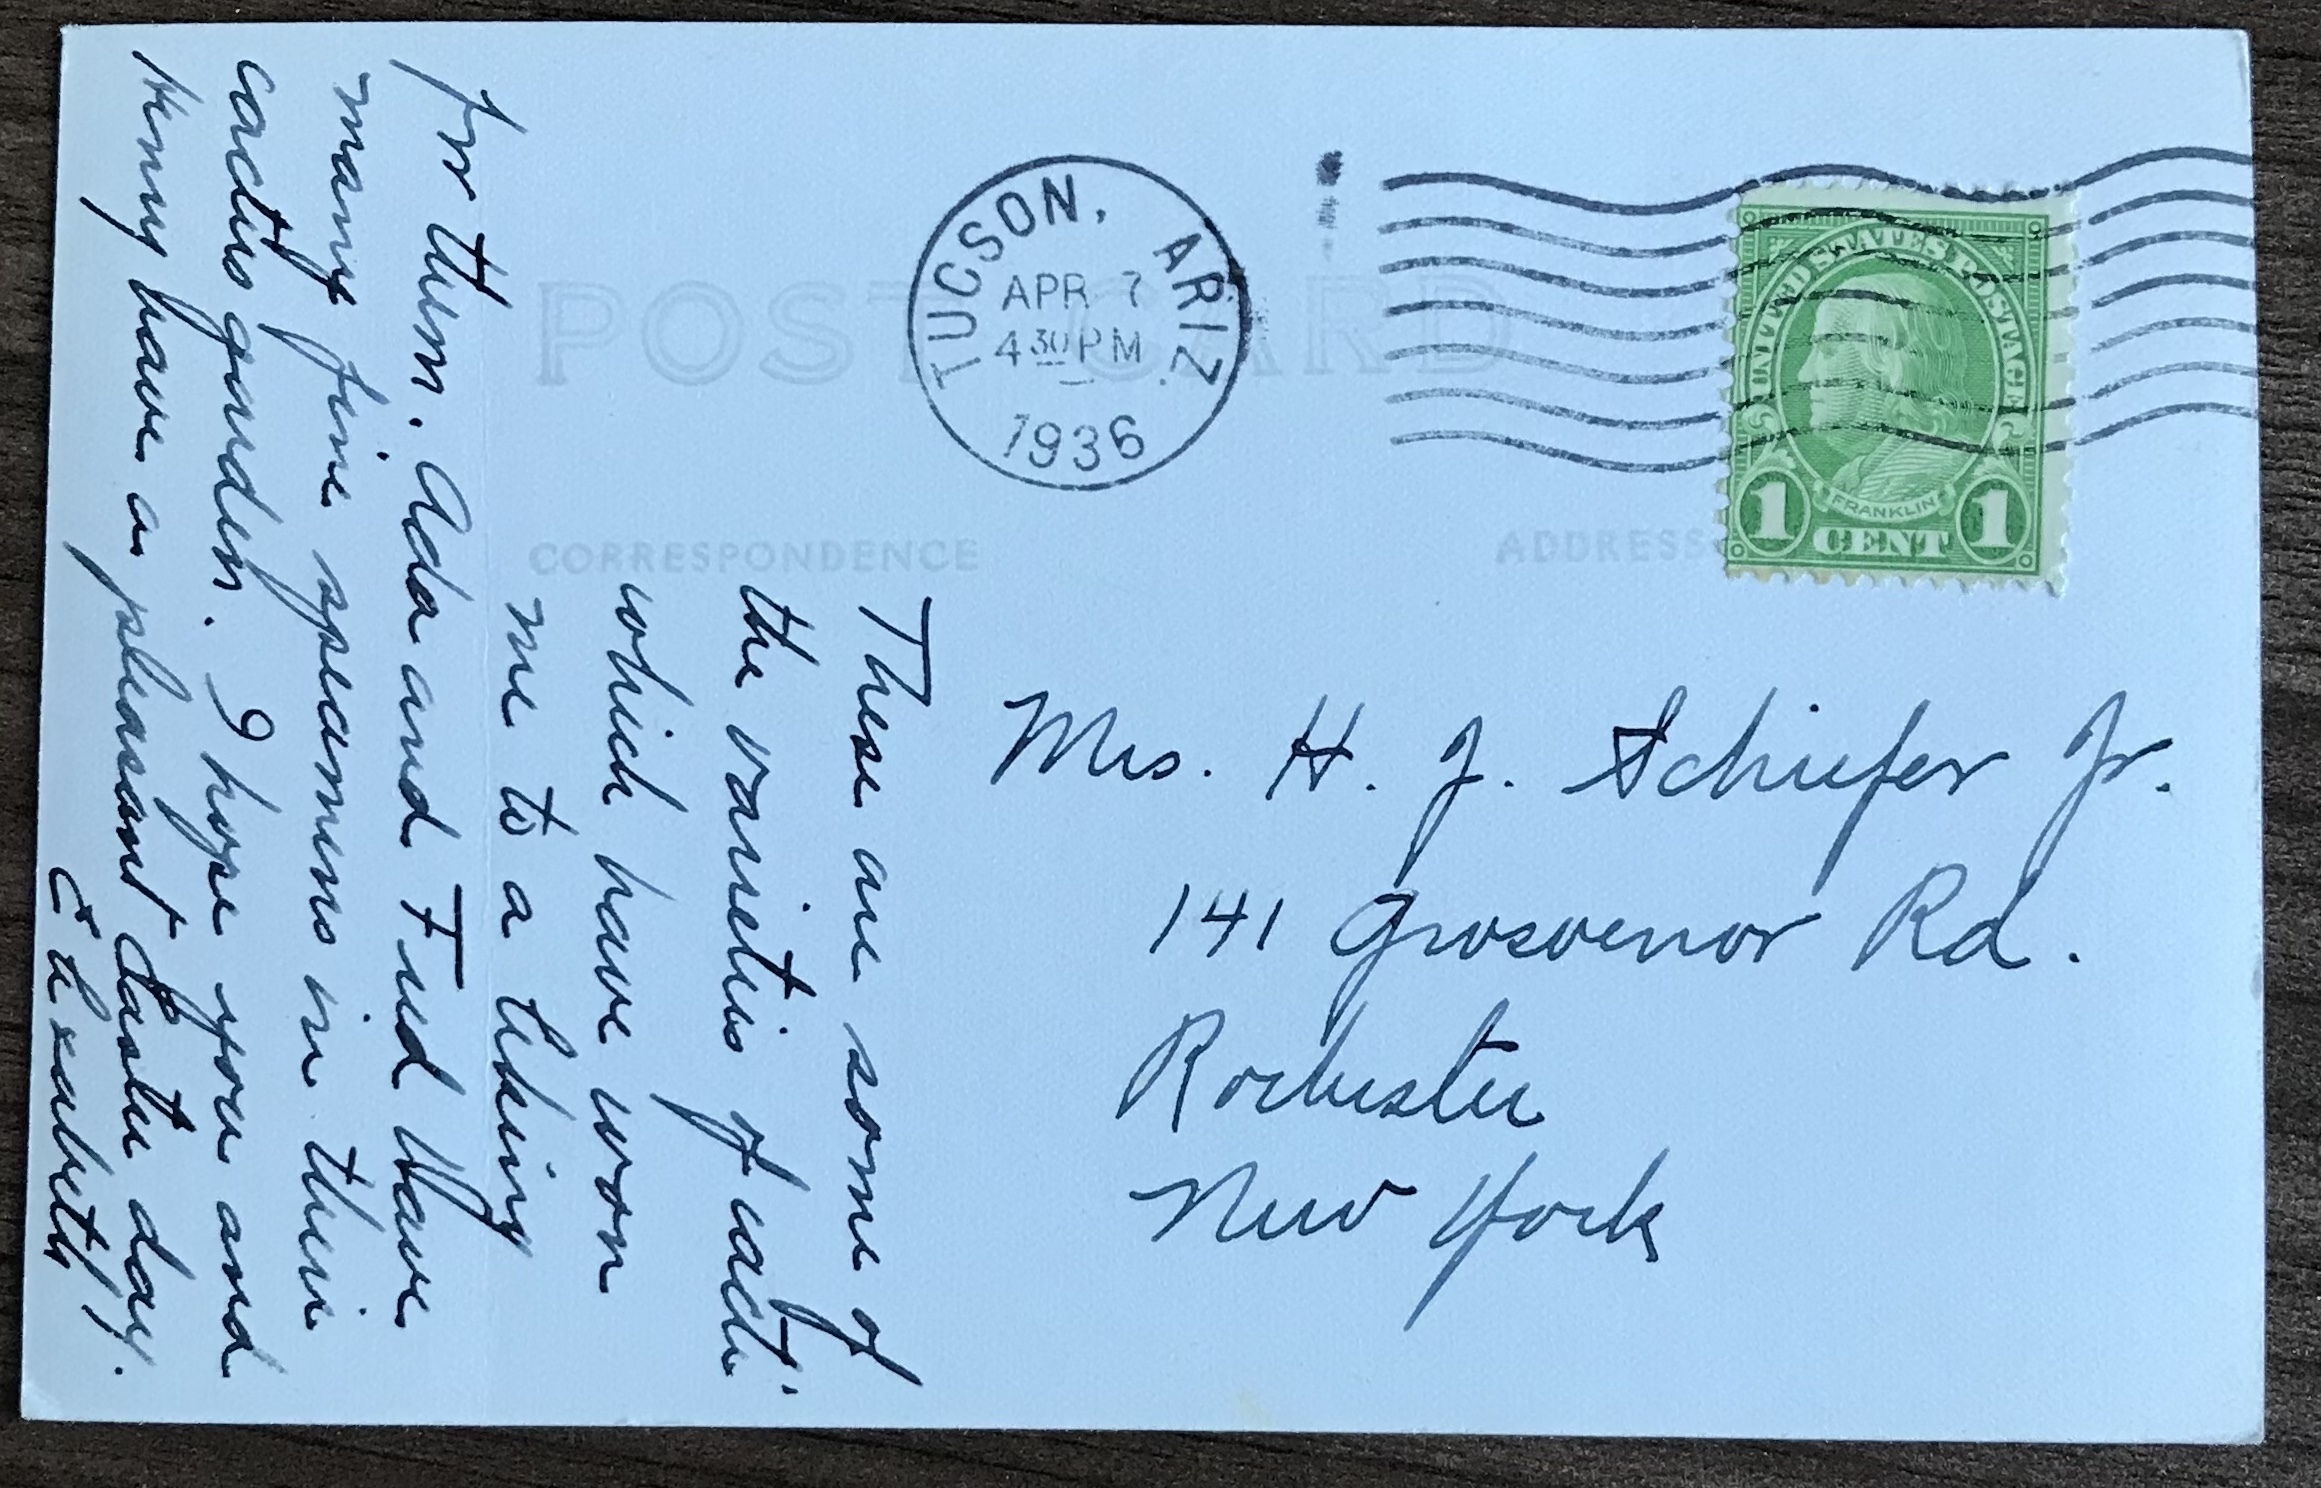 POST CARD
TUCSON, ARIZ.
APR 7
4 30 PM
1936
UNITED STATES POSTAGE
FRANKLIN
1 CENT 1
CORRESPONDENCE
ADDRESS
These are some of
the varieties of cacti
which have won
me to a liking
for them. Ada and Fred have
many fine specimens in their
cactus garden. I hope you and
Henry have a pleasant Easter day.
Elizabeth
Mrs. H. J. Schiefer Jr.
141 Grosvenor Rd.
Rochester
New York